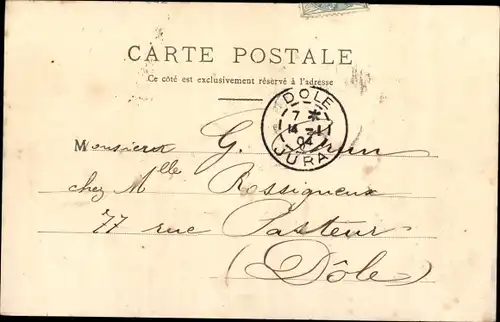 CARTE POSTALE
Ce côté est exclusivement réservé à l'adresse
DOLE
7 *
14 -1
04
JURA
Monsieur G.
chez Mlle Rossigneux
77 rue Pasteur
(Dôle)